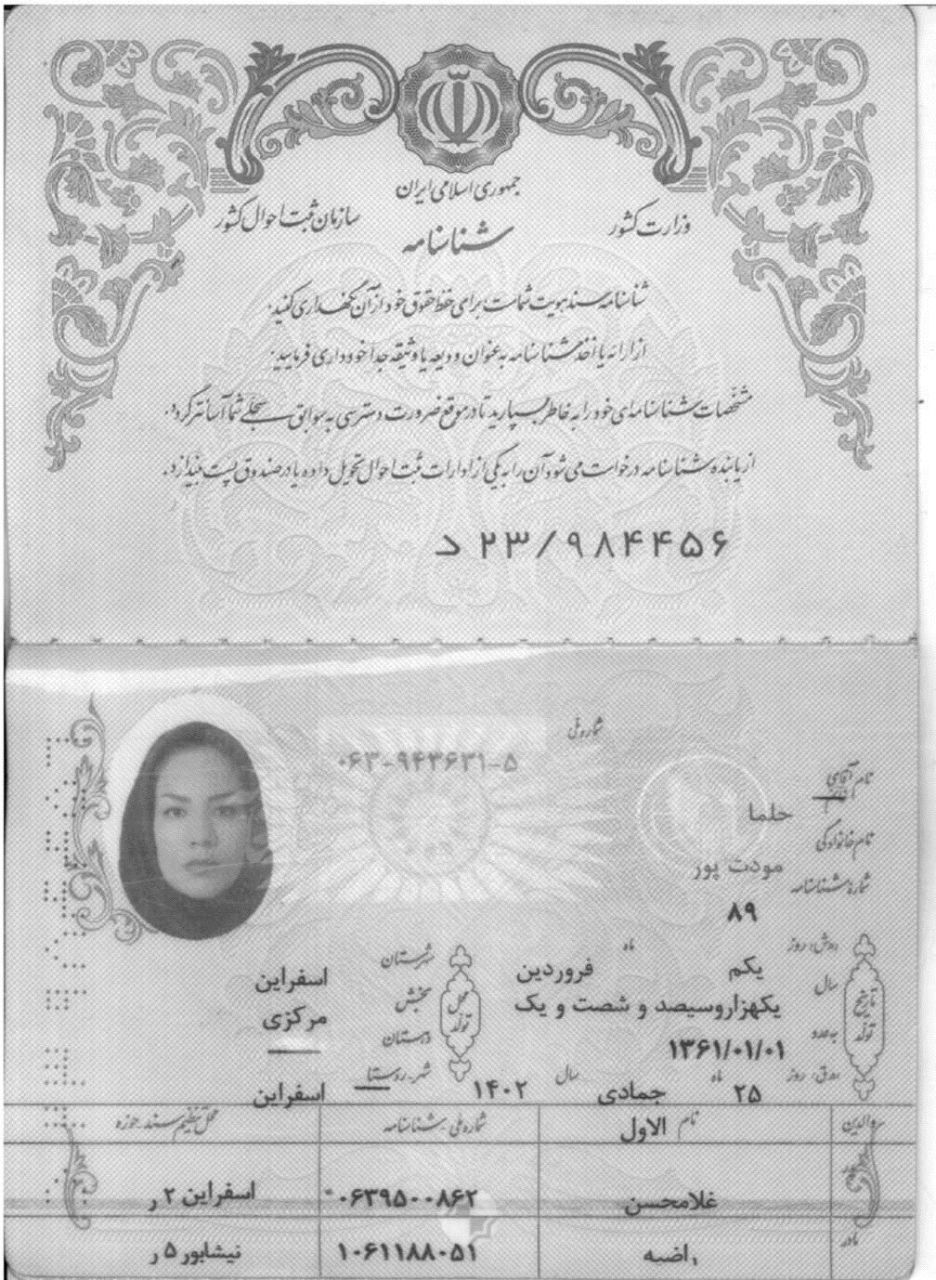 جمهوری اسلامی ایران
وزارت کشور
سازمان ثبت احوال کشور
شناسنامه
شناسنامه سند هویت شماست برای حفظ حقوق خود از آن نگهداری کنید.
از ارائه یا اخذ شناسنامه به عنوان ودیعه یا وثیقه جداً خودداری فرمایید.
مشخصات شناسنامه‌ای خود را به خاطر بسپارید تا در موقع ضرورت دسترسی به سوابق سجلی شما آسانتر گردد.
از یابنده شناسنامه درخواست می شود آن را به یکی از ادارات ثبت احوال تحویل داده یا در صندوق پست بیندازد.
د ۲۳/۹۸۴۴۵۶
شماره ملی
۰۶۳-۹۴۳۶۳۱-۵
نام آقای خانم
حلما
نام خانوادگی
مودت پور
شماره شناسنامه
۸۹
تاریخ تولد
روز یکم ماه فروردین
سال یکهزاروسیصد و شصت و یک
به عدد ۱۳۶۱/۰۱/۰۱
روز ۲۵ ماه جمادی الاول سال ۱۴۰۲
محل تولد
شهرستان اسفراین
بخش مرکزی
دهستان
شهر-روستا اسفراین
والدین نام شماره ملی-شناسنامه محل تنظیم سند-حوزه
پدر غلامحسن ۰۶۳۹۵۰۰۸۶۲ اسفراین ۲ ر
مادر راضیه ۱۰۶۱۱۸۸۰۵۱ نیشابور ۵ ر